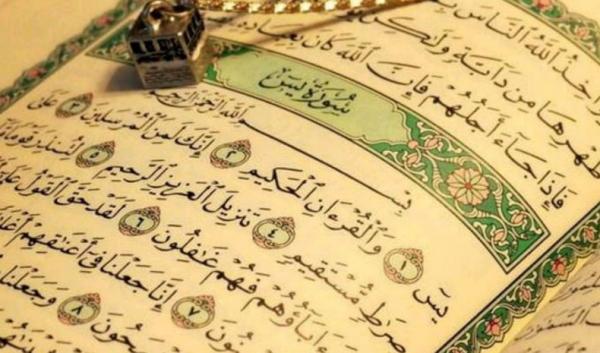 ٱللَّهُ ٱلنَّاسَ
ظَهْرِهَا مِن دَآبَّةٍ وَلَٰكِن
فَإِذَا جَآءَ أَجَلُهُمْ فَإِنَّ ٱللَّهَ كَانَ بِعِبَادِهِ
سُورَةُ يسٓ
بِسْمِ ٱللَّهِ ٱلرَّحْمَٰنِ ٱلرَّحِيمِ
يسٓ ١ وَٱلْقُرْءَانِ ٱلْحَكِيمِ ٢ إِنَّكَ لَمِنَ ٱلْمُرْسَلِينَ ٣ عَلَىٰ
صِرَٰطٍ مُّسْتَقِيمٍ ٤ تَنزِيلَ ٱلْعَزِيزِ ٱلرَّحِيمِ ٥ لِتُنذِرَ قَوْمًا مَّآ
ءَابَآؤُهُمْ فَهُمْ غَٰفِلُونَ ٦ لَقَدْ حَقَّ ٱلْقَوْلُ عَلَىٰٓ
٧ إِنَّا جَعَلْنَا فِىٓ أَعْنَٰقِهِمْ
٨ وَجَعَلْنَا